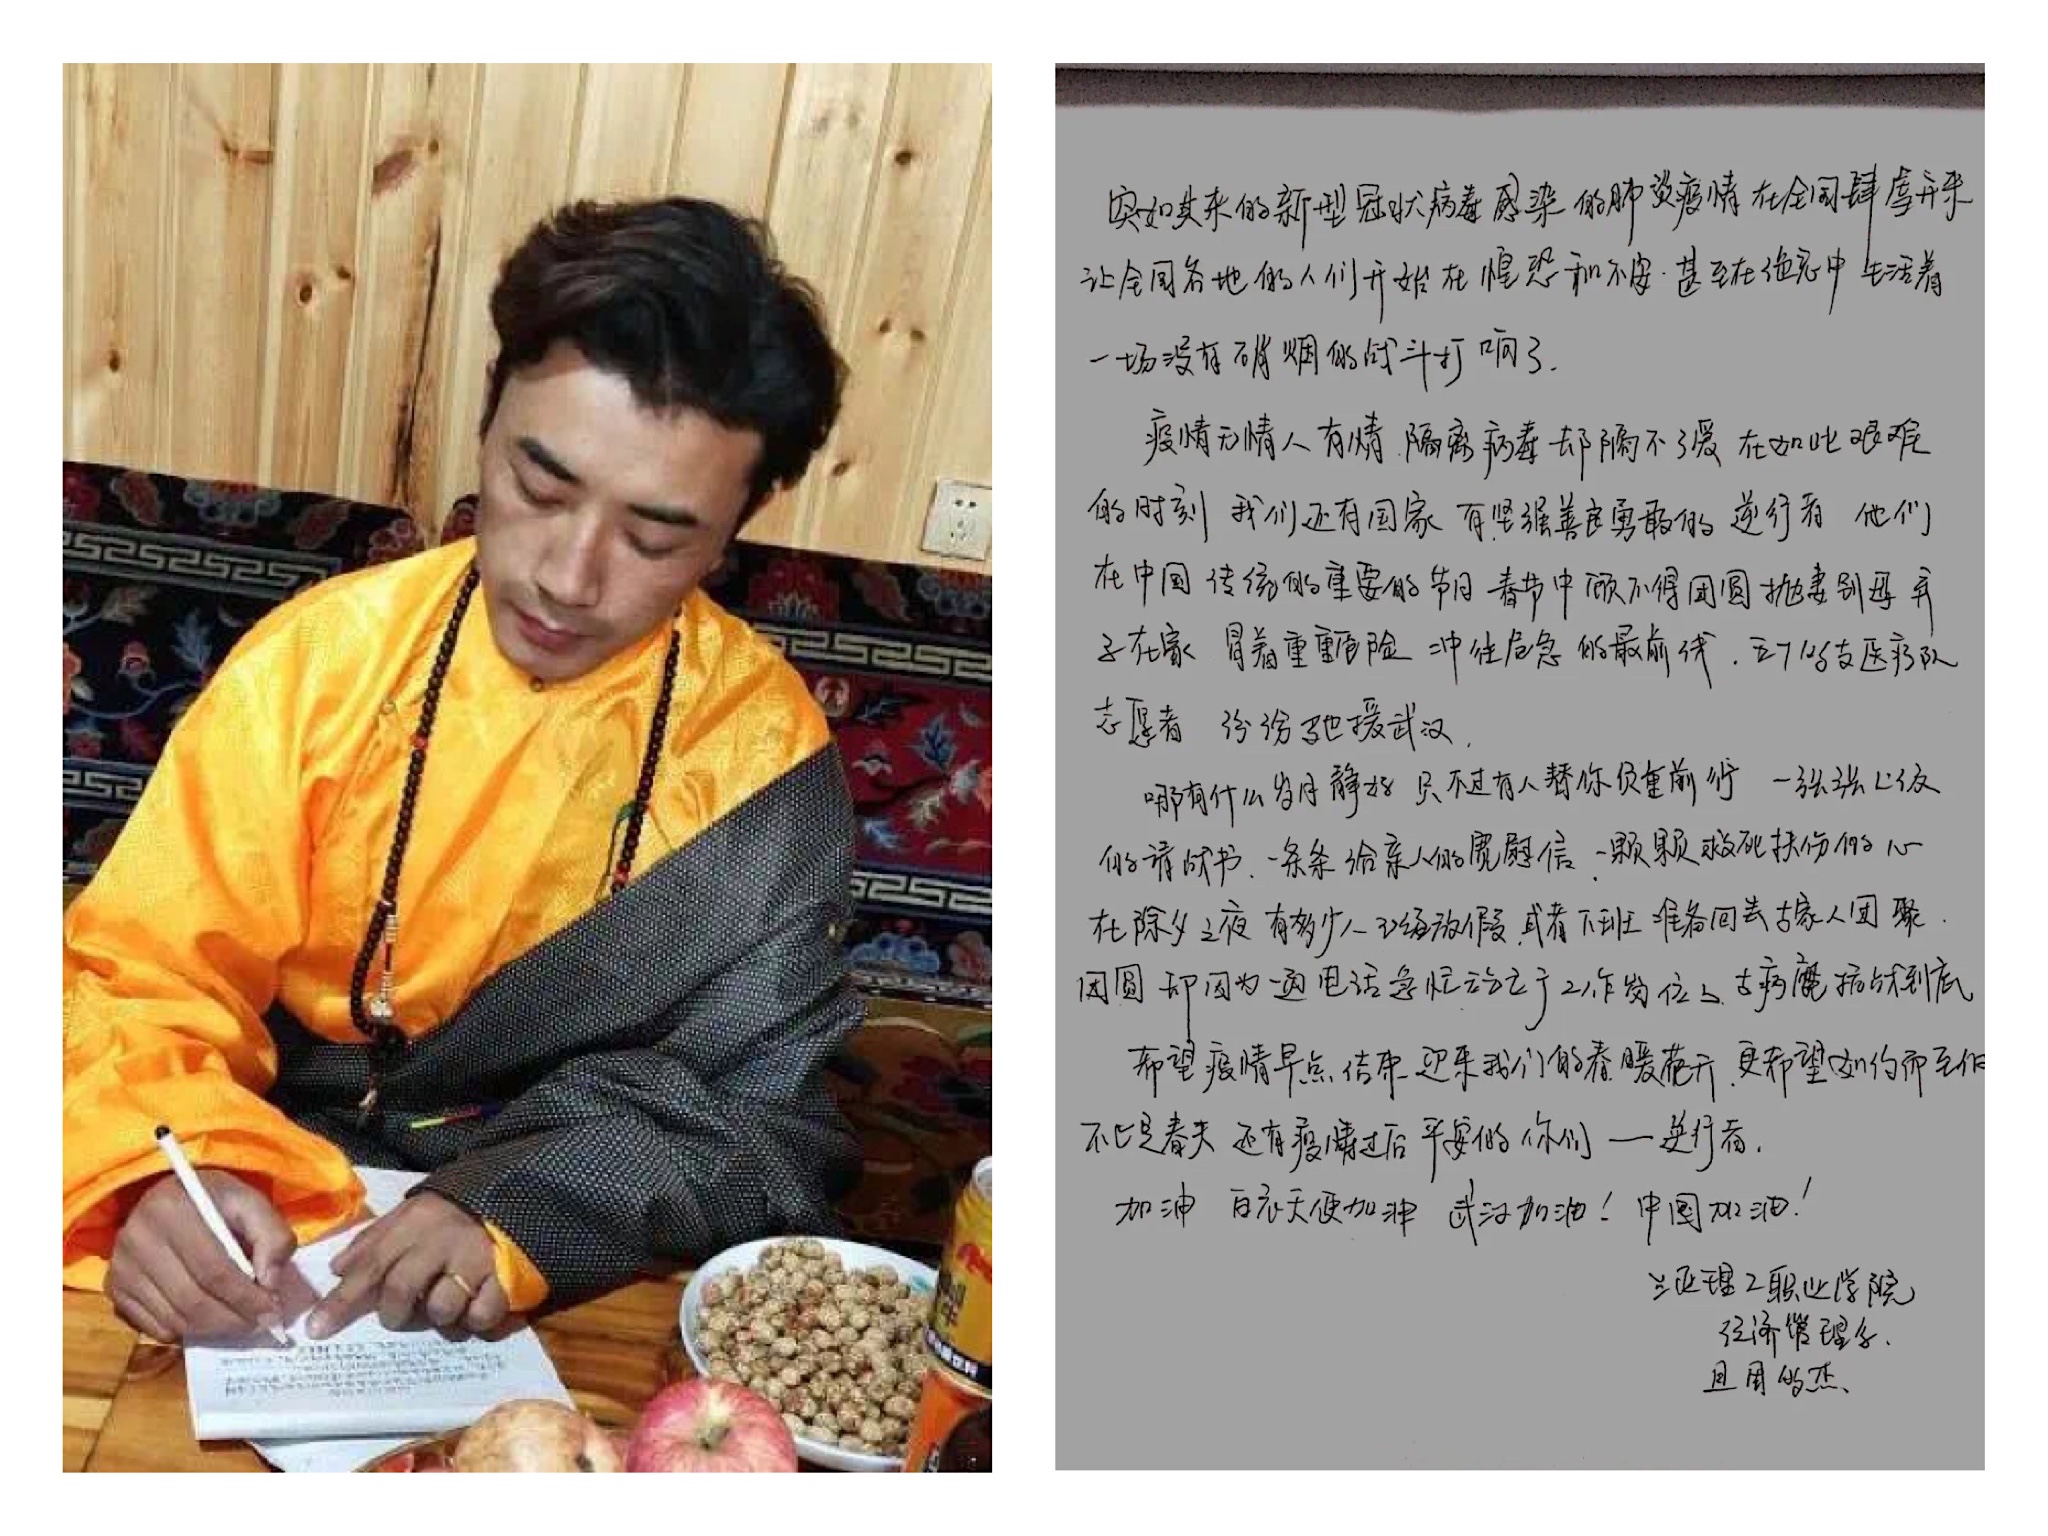 突如其来的新型冠状病毒感染的肺炎疫情在全国肆虐开来
让全国各地的人们开始在惶恐和不安.甚至在绝忘中生活着
一场没有硝烟的战斗打响了.
疫情无情人有情.隔离病毒却隔不了爱 在如此艰难
的时刻 我们还有国家 有坚强善良勇敢的逆行者 他们
在中国传统的重要的节日 春节中顾不得团圆 抛妻别母弃
子在家 冒着重重危险 冲往危急的最前线.
支医疗队
志愿者 纷纷驰援武汉.
哪有什么岁月静好 只不过有人替你负重前行 一张张上级
的请战书.一条条给亲人的宽慰信.一颗颗救死扶伤的心
在除夕之夜 有多少人已经放假.或者下班 准备回去与家人团聚.
团圆 却因为一通电话急忙
于工作岗位上.与病魔抗战到底
希望疫情早点结束 迎来我们的春暖花开.更希望如约而至的
不止是春天 还有疫情过后平安的你们——逆行者.
加油 白衣天使加油 武汉加油！中国加油！
理工职业学院
经济管理